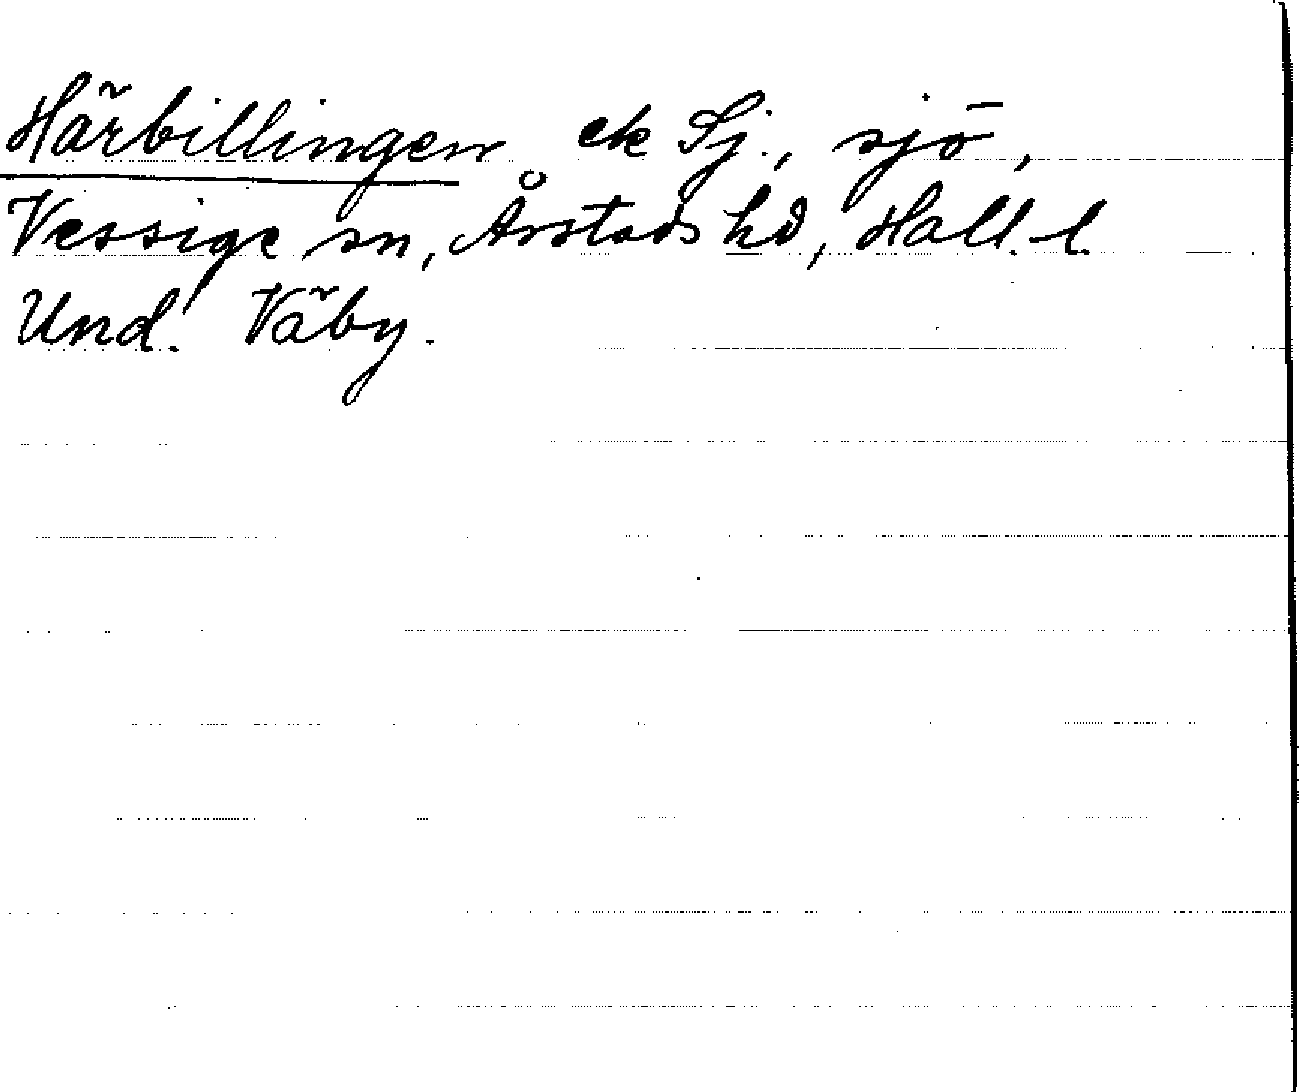 Härbillingen ek Sj., sjö,
Vessige sn, Årstads hd, Hall. l.
Und. Väby.